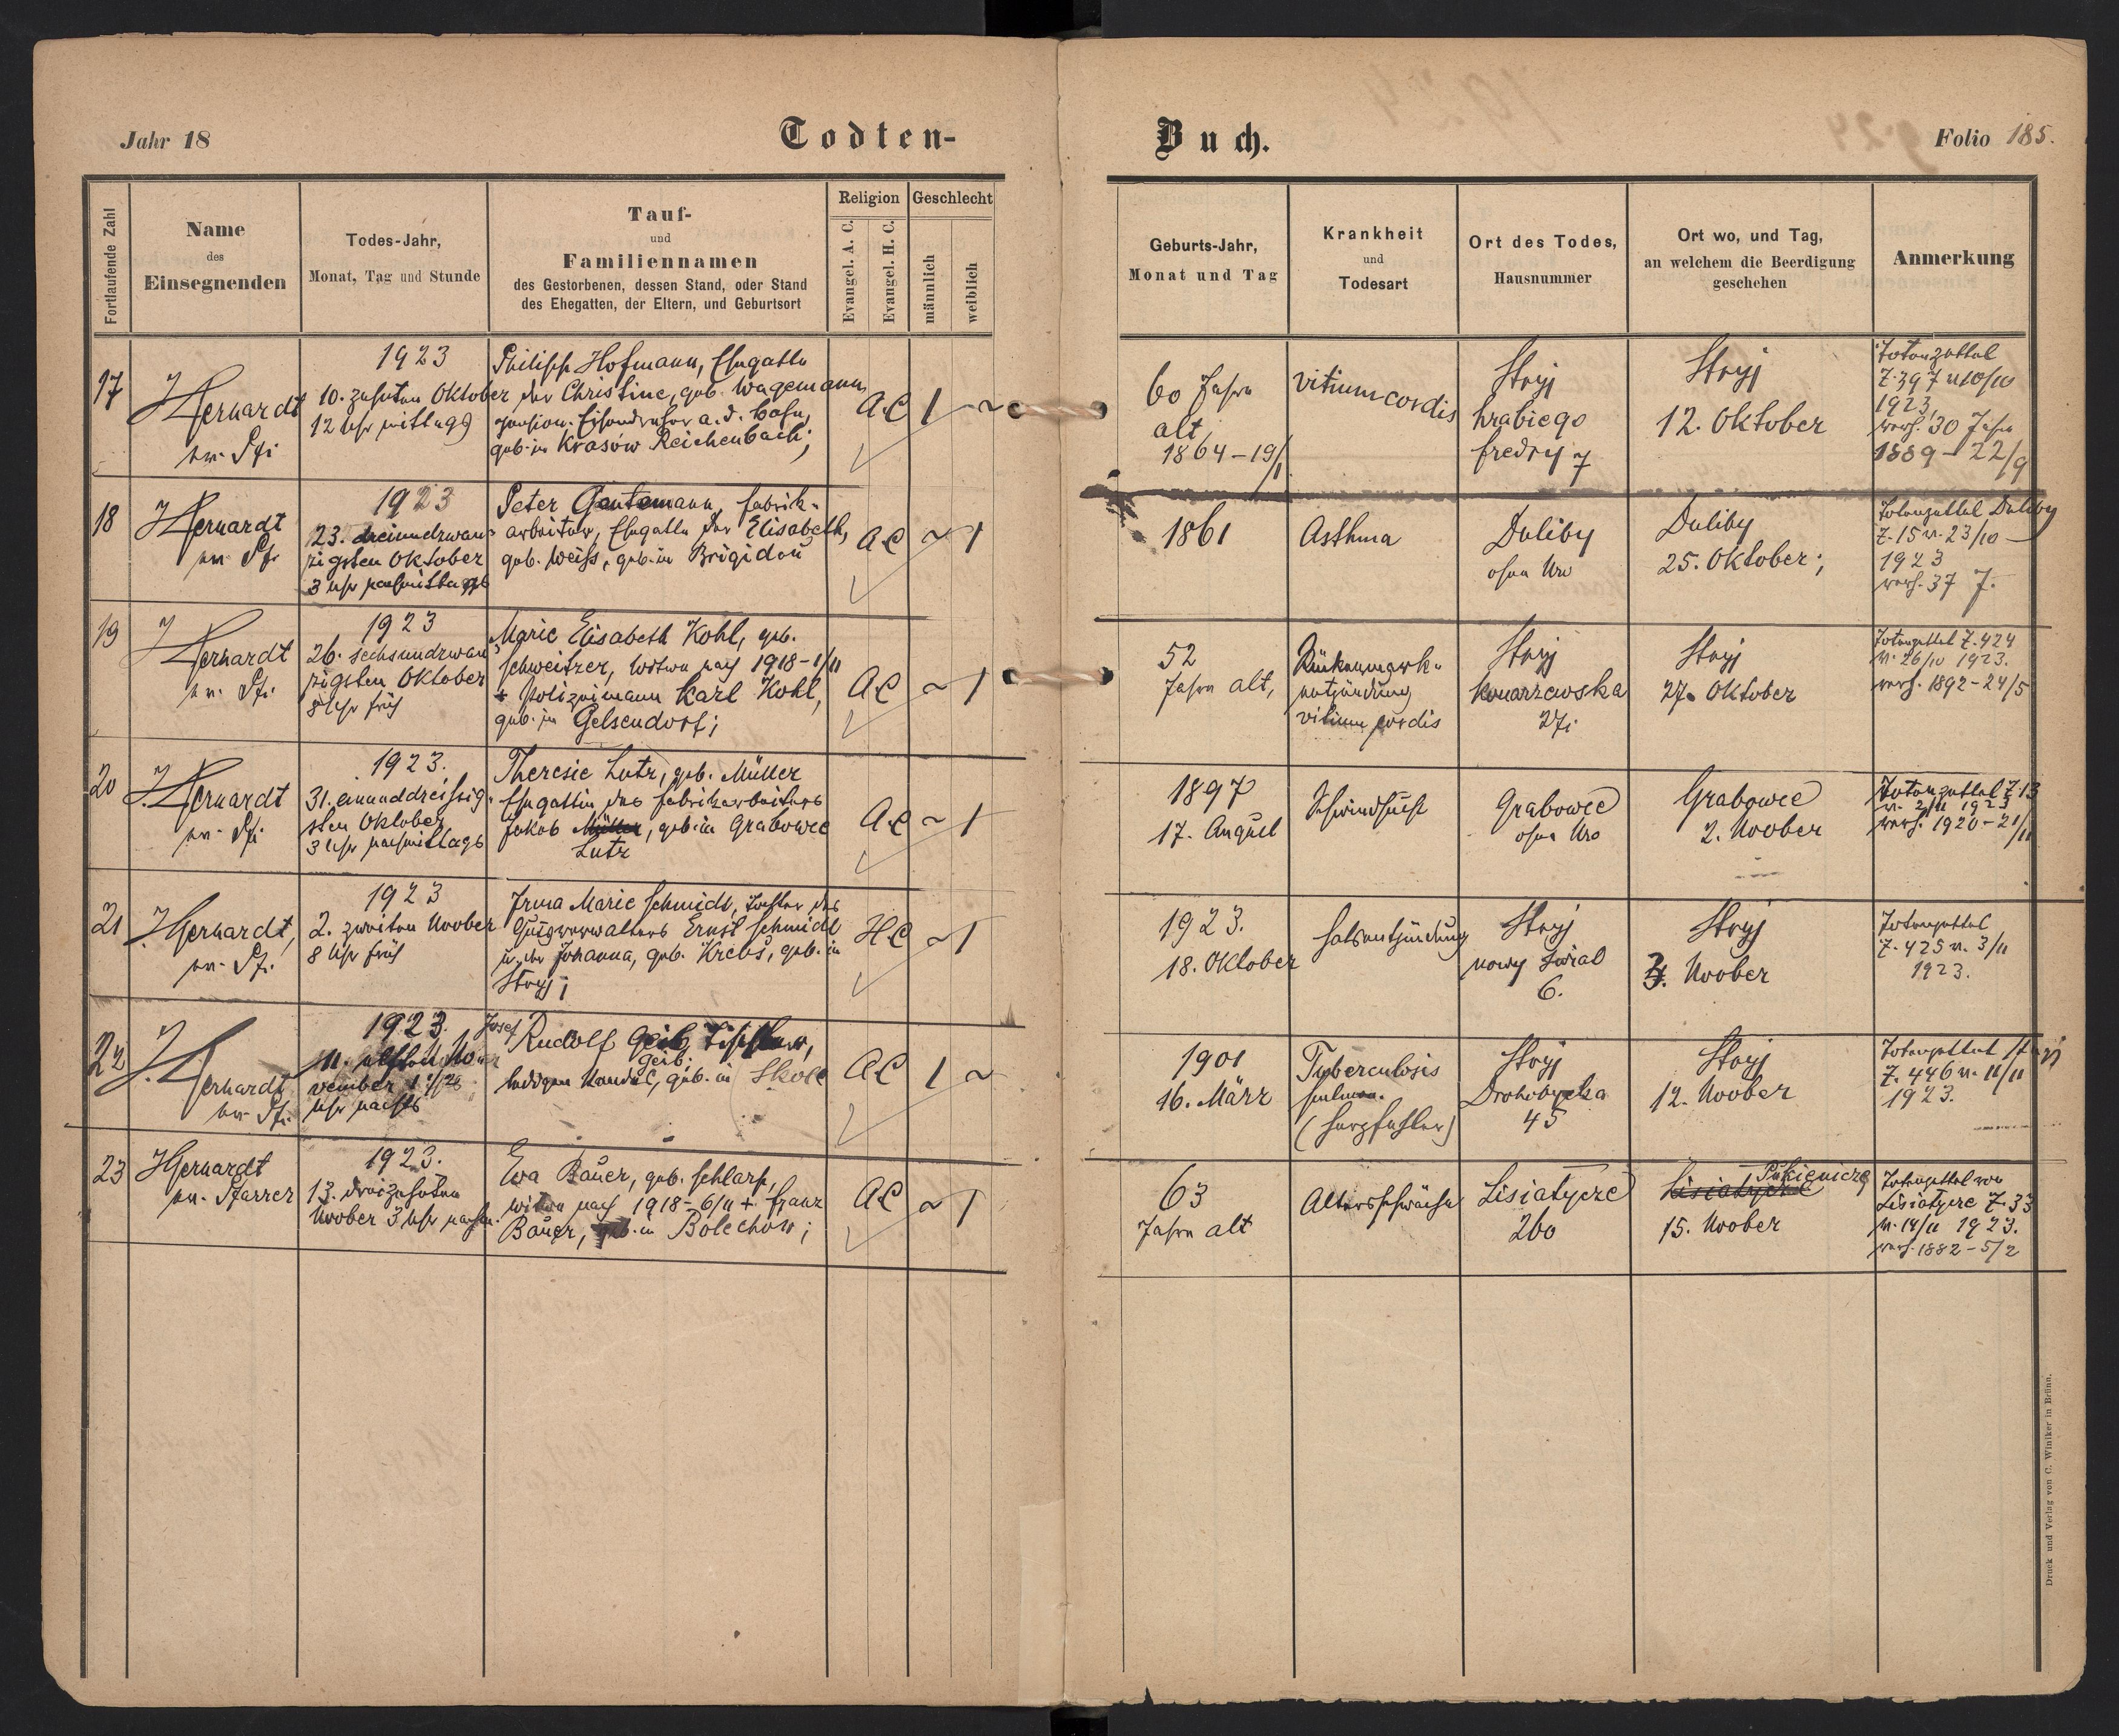 Jahr 18
Todten-
Buch.
Folio 185.
Fortlaufende Zahl
Name
des
Einsegnenden
Todes-Jahr,
Monat, Tag und Stunde
Tauf-
und
Familiennamen
des Gestorbenen, dessen Stand, oder Stand
des Ehegatten, der Eltern, und Geburtsort
Religion
Evangel. A. C.
Evangel. H. C.
Geschlecht
männlich
weiblich
Geburts-Jahr,
Monat und Tag
Krankheit
und
Todesart
Ort des Todes,
Hausnummer
Ort wo, und Tag,
an welchem die Beerdigung
geschehen
Anmerkung
17
Hernardt
ev. Pfr
1923
10. zehnten Oktober
12 Uhr mittags
Philipp Hofmann, Ehegatte
der Christine, geb. Wagemann,
pension. Eisendreher a. d. Bahn,
geb. in Krasów Reichenbach;
A.C
1
60 Jahre
alt
1864-19/1
vitium cordis
Stryj
hrabiego
fredry 7
Stryj
12. Oktober
Totenzettel
Z. 397 v 10/10
1923,
verh. 30 Jahre
1889-22/9
18
Hernardt
ev. Pfr
1923
23. dreiundzwan-
zigsten Oktober
3 Uhr nachmittags
Peter Gentemann, fabrik-
arbeiter, Ehegatte der Elisabeth,
geb. Weiss, geb. in Brigidau
A.C
1
1861
Asthma
Duliby
ohne Nro
Duliby
25. Oktober;
Totenzettel Duliby
Z. 15 v. 23/10
1923
verh. 37 J.
19
J Hernardt
ev. Pfr.
1923
26. sechsundzwan
zigsten Oktober
8 Uhr früh
Marie Elisabeth Kohl, geb.
Schweitzer, Witwe nach 1918-1/11
+ Polizeimann Karl Kohl,
geb. in Gelsendorf;
A.C
1
52
Jahre alt,
Rückenmark-
entzündung
vitium cordis
Stryj
Konarzewska
27.
Stryj
27. Oktober
Totenzettel Z. 424
v. 26/10 1923.
verh. 1892-24/5
20
J. Hernardt
ev. Pfr
1923.
31. einunddreissig-
sten Oktober
3 Uhr nachmittags
Theresie Lutz, geb. Müller
Ehegattin des fabrikarbeiters
Jakob Müller, geb. in Grabowce
Lutz
A.C
1
1897
17. August
Schwindsucht
Grabowce
ohne Nro
Grabowce
2. Novber
Totenzettel Z. 13
v. 2/11 1923
verh. 1920-21/11
21
J. Hernardt,
ev. Pfr.
1923
2. zweiten Novber
8 Uhr früh
Irma Marie Schmidt, Tochter des
Gutsverwalters Ernst Schmidt
u. der Johanna, geb. Krebs, geb. in
Stryj;
H.C
1
1923.
18. Oktober
Halsentzündung
Stryj
nowy świat
6.
Stryj
3. Novber
Totenzettel
Z. 425 v. 3/11
1923.
22
J. Hernardt
ev. Pfr.
1923.
11. elften No-
vember 1 1/2
Uhr nachts
Josef
Rudolf Geib,
Geib.
ledigen Standes, geb. in Skole
A.C
1
1901
16. März
Tuberculosis
pulmon.
(Herzfehler)
Stryj
Drohobycka
45
Stryj
12. Novber
Totenzettel Stryj
Z. 446 v. 11/11
1923.
23
Hernardt
ev. Pfarrer
1923.
13. dreizehnten
Novber 3 Uhr nachm.
Eva Bauer, geb. Scharf,
Witwe nach 1918-6/11 + Franz
Bauer, geb. in Bolechow;
A.C
1
63
Jahre alt
Altersschwäche
Lisiatycze
260
Lisiatycze
Pukienicze
15. Novber
Totenzettel von
Lisiatycze Z. 33
v. 14/11 1923.
verh. 1882-5/2
Druck und Verlag von C. Winiker in Brünn.